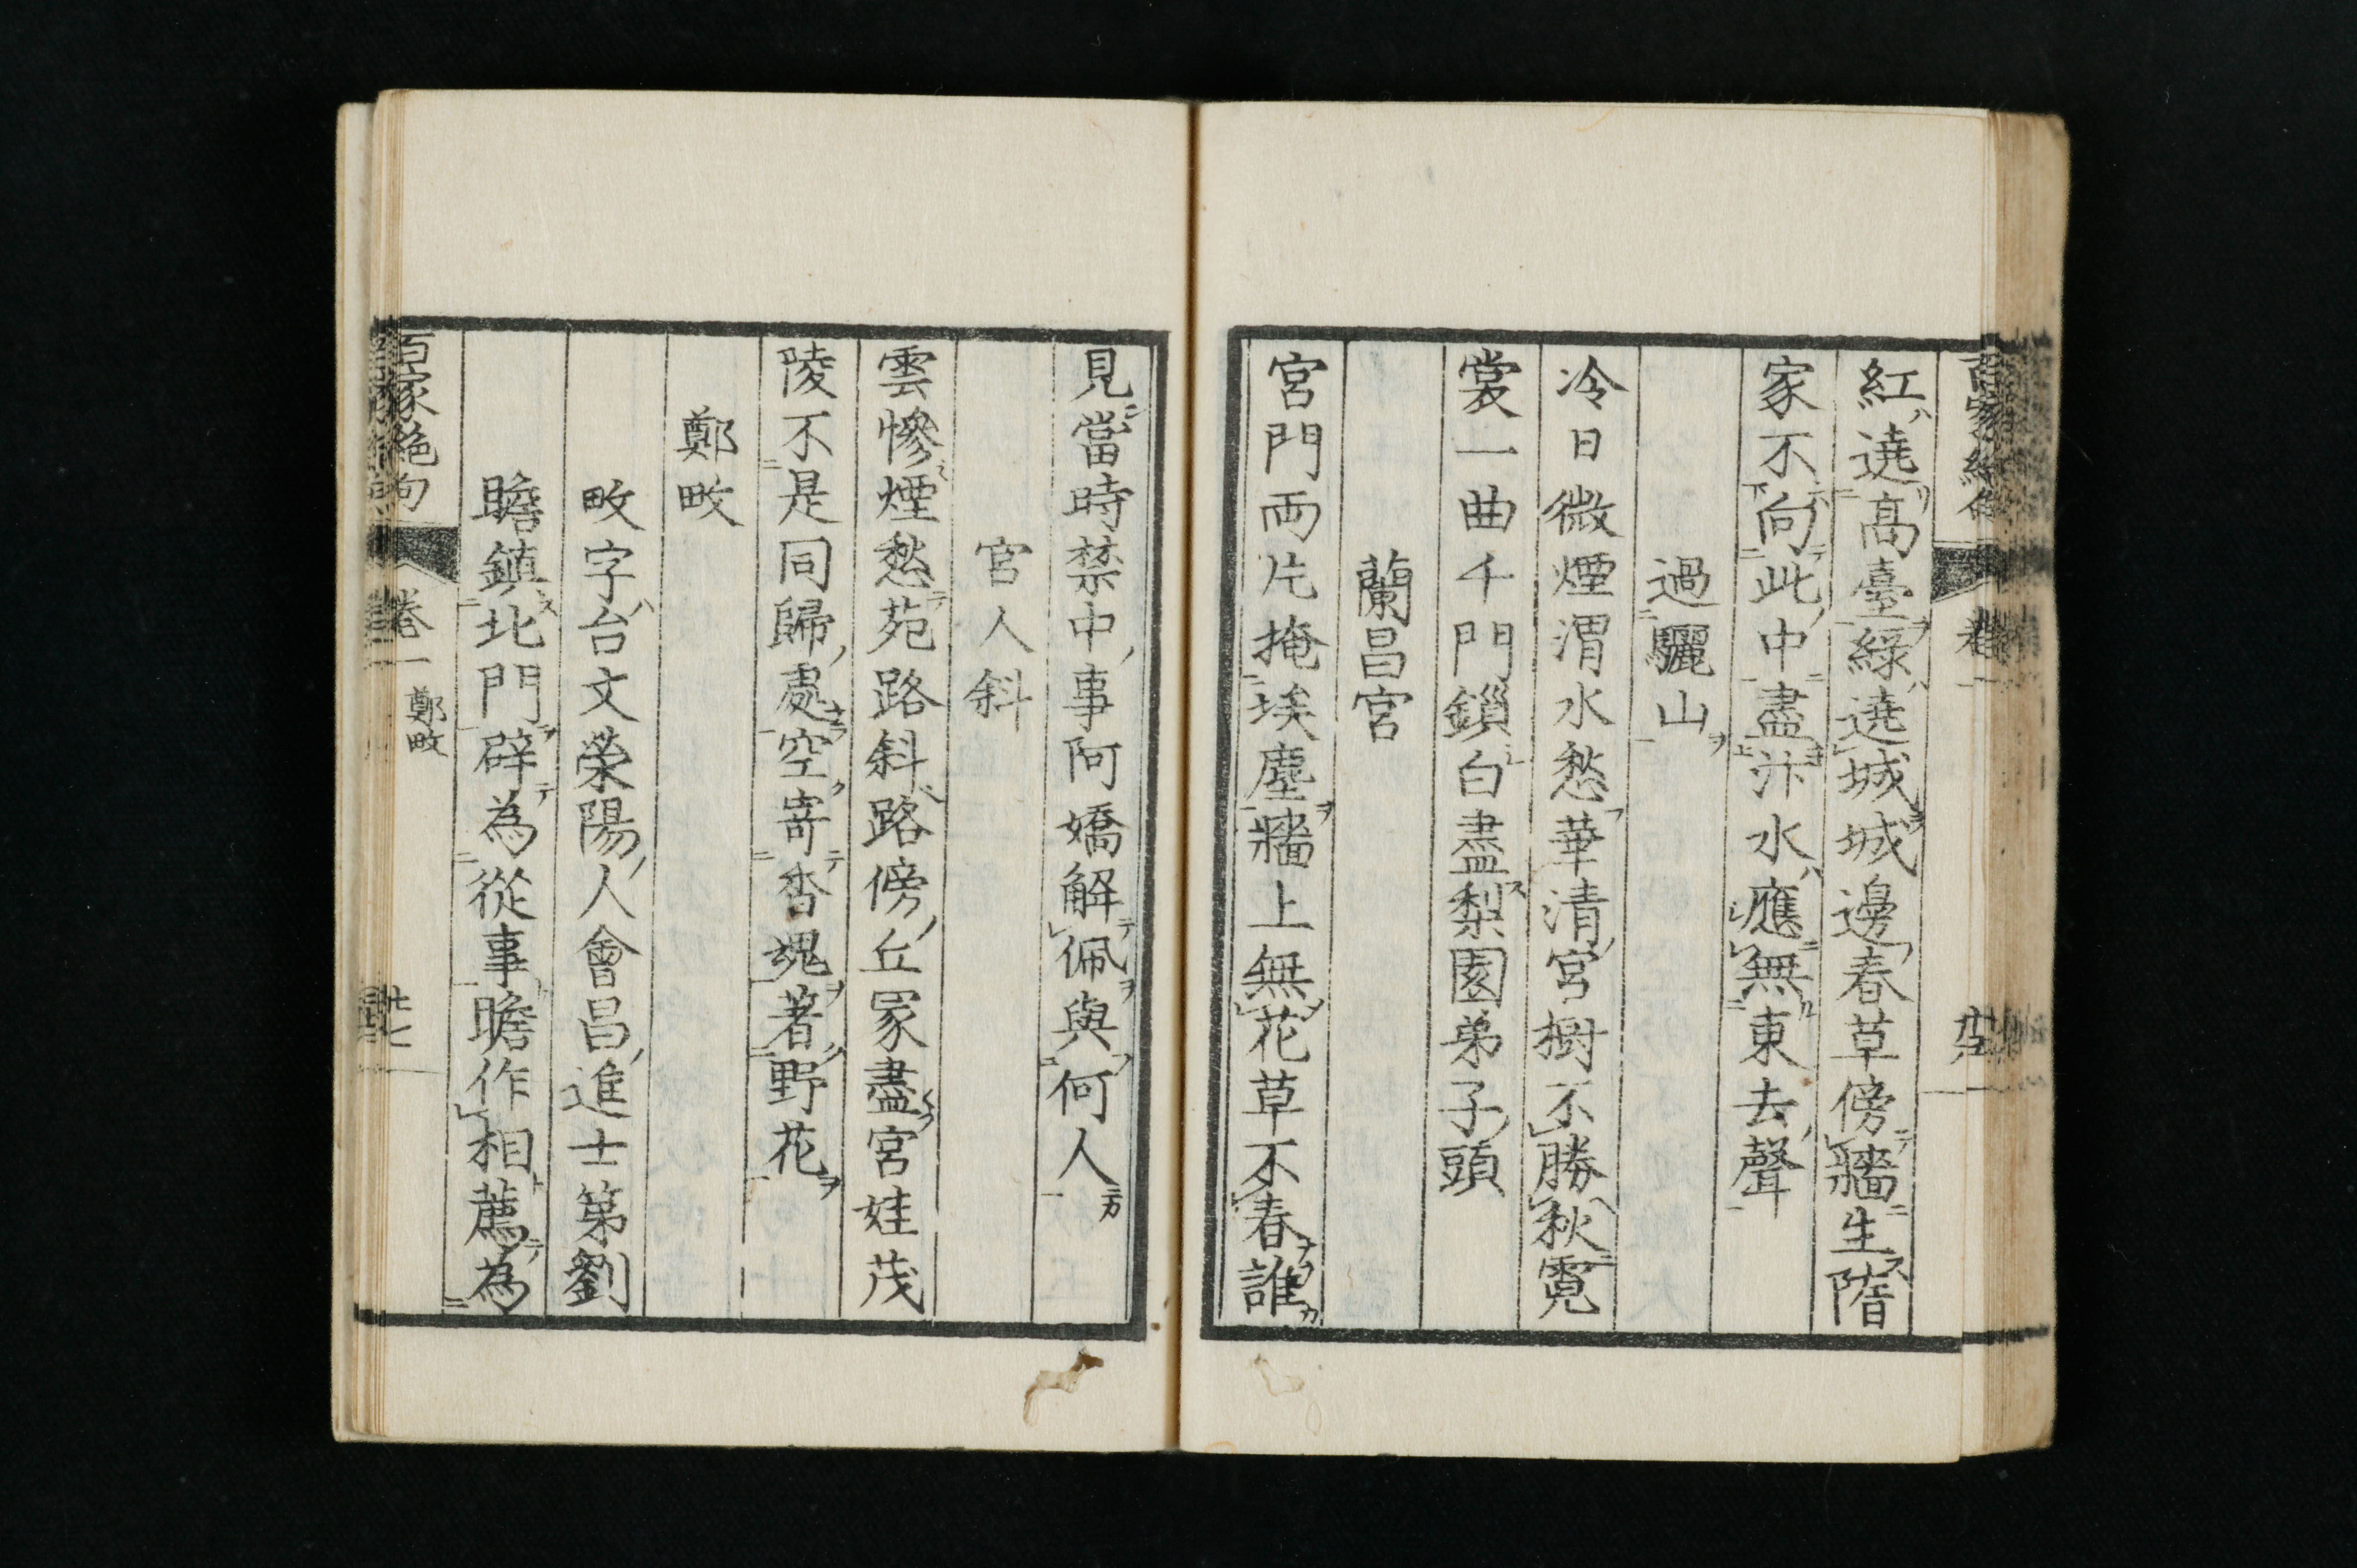 紅遶高臺綠遶城城邊春草傍牆生隋
家不向此中盡汴水應無東去聲
過驪山
冷日微煙渭水愁華清宮樹不勝秋霓
裳一曲千門鎖白盡梨園弟子頭
蘭昌宮
宮門両片掩埃塵牆上無花草不春誰
見當時禁中事阿嬌解佩與何人
宮人斜
雲慘煙愁苑路斜路傍丘冢盡宮娃茂
陵不是同歸處空寄香魂著野花
鄭畋
畋字台文滎陽人會昌進士第劉
瞻鎮北門辟為從事瞻作相薦為
百家絶句 卷一 鄭畋 廿七